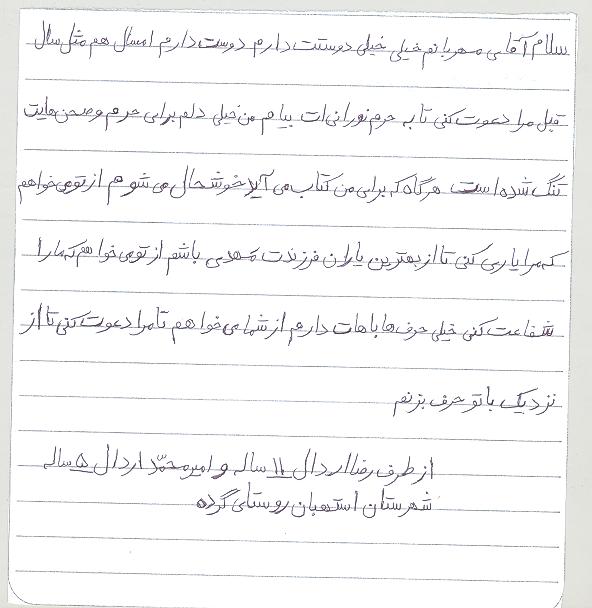 سلام آقای مهربانم خیلی خیلی دوستت دارم دوست دارم امسال هم مثل سال
قبل مرا دعوت کنی تا به حرم نورانی ات بیایم من خیلی دلم برای حرم و صحن هایت
تنگ شده است هرگاه که برای من کتاب می آید خوشحال می شوم از تو می خواهم
که مرا یاری کنی تا از بهترین یاران فرزندت مهدی باشم از تو می خواهم که ما را
شفاعت کنی خیلی حرف ها باهات دارم از شما می خواهم تا مرا دعوت کنی تا از
نزدیک با تو حرف بزنم
از طرف رضا اردال ۱۱ ساله و امیرمحمّد اردال ۵ ساله
شهرستان استهبان روستای گرده